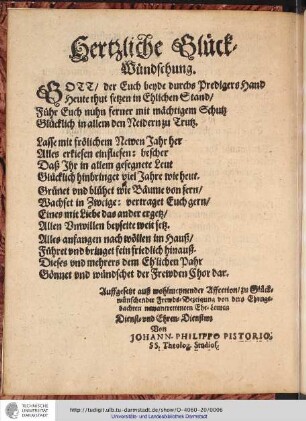 Hertzliche Glück-
Wündschung.
GOTT/ der Euch beyde durchs Predigers Hand
Heute thut setzen in Ehlichen Stand/
Führ Euch nuhn ferner mit mächtigem Schutz
Glücklich in allem den Neidern zu Trutz.
Lasse mit frölichem Newen Jahr her
Alles erkiesen einfliesen: bescher
Daß Ihr in allem gesegnete Leut
Glücklich hinbringet viel Jahre wie heut.
Grünet und blühet wie Bäume von fern/
Wachset in Zweige: vertraget Euch gern/
Eines mit Liebe das ander ergetz/
Allen Unwillen beyseite weit setz.
Alles anfangen nach wöllen im Hauß/
Führet und bringet fein friedlich hinauß.
Dieses und mehrers dem Ehlichen Pahr
Gönnet und wündschet der Frewden Chor dar.
Auffgesetzt auß wohlmeynender Affection/ zu Glück-
wünschender Frewds-Bezeigung von
Dienst- und
Von
JOHANN-PHILIPPO PISTORIO,
SS. Theolog. Studios.
TECHNISCHE
UNIVERSITÄT
DARMSTADT
http://tudigit.ulb.tu-darmstadt.de/show/O-4060-20/0006
Universitäts- und Landesbibliothek Darmstadt